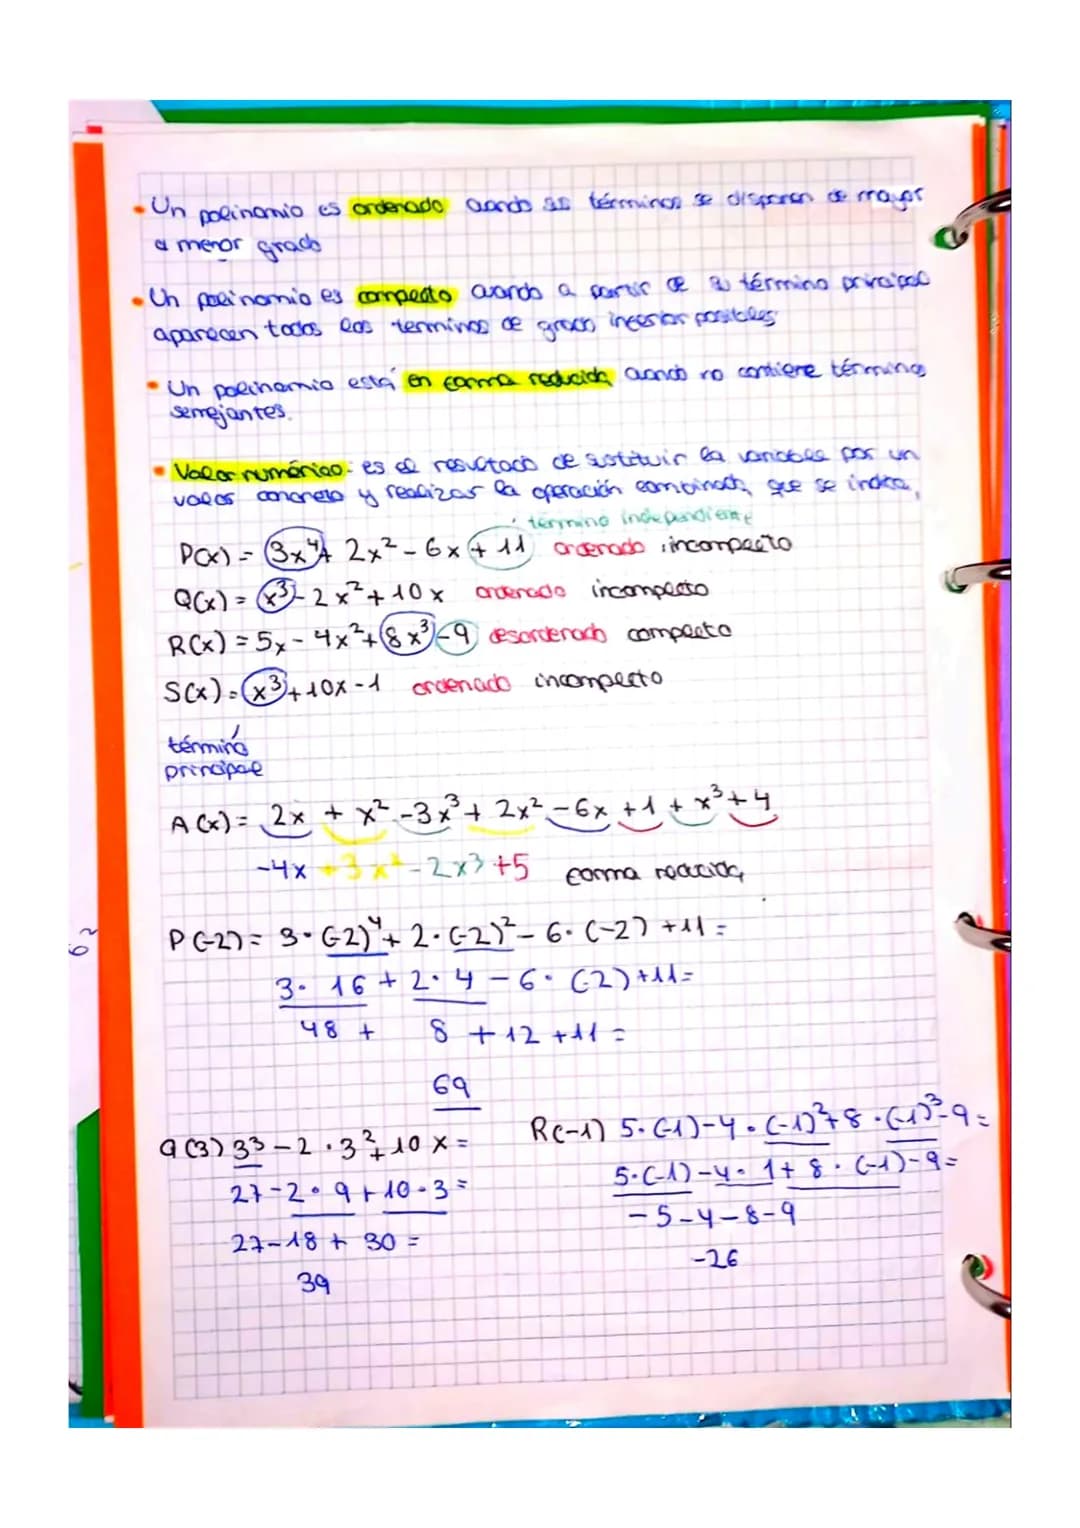 • Un polinomio es ordenado cuando sus términos se disponen de mayor
a menor grado
• Un polinomio es completo cuando a partir de su término principal
aparecen todos los terminos de grado inferior posibles
• Un polinomio está en forma reducida cuando no contiene términos
semejantes.
• Valor numérico: es el resultado de sustituir la variable por un
valor concreto y realizar la operación combinada que se indica,
término independiente
P(x) = 3x⁴+ 2x² - 6x + 11 ordenado, incompleto
Q(x) = x³ - 2x² + 10x ordenado incompleto
R(x) = 5x - 4x² + 8x³ - 9 desordenado completo
S(x) = x³ + 10x - 1 ordenado incompleto
término
principal
A(x) = 2x + x² - 3x³ + 2x² - 6x + 1 + x³ + 4
-4x + 3x² - 2x³ + 5 forma reducida
P(-2) = 3·(-2)⁴ + 2·(-2)² - 6·(-2) + 11 =
3· 16 + 2· 4 - 6· (-2) + 11 =
48 + 8 + 12 + 11 =
69
Q(3) 3³ - 2·3² + 10x =
27 - 2·9 + 10·3 =
27 - 18 + 30 =
39
R(-1) 5·(-1) - 4·(-1)² + 8·(-1)³ - 9 =
5·(-1) - 4·1 + 8·(-1) - 9 =
-5 - 4 - 8 - 9
-26